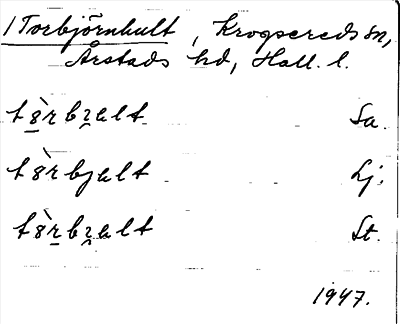 1 Torbjörnhult, Krogsereds sn,
Årstads hd, Hall. l.
tòrbʒult Sa.
tòrbjult Lj.
tòrbʒult St.
1947.